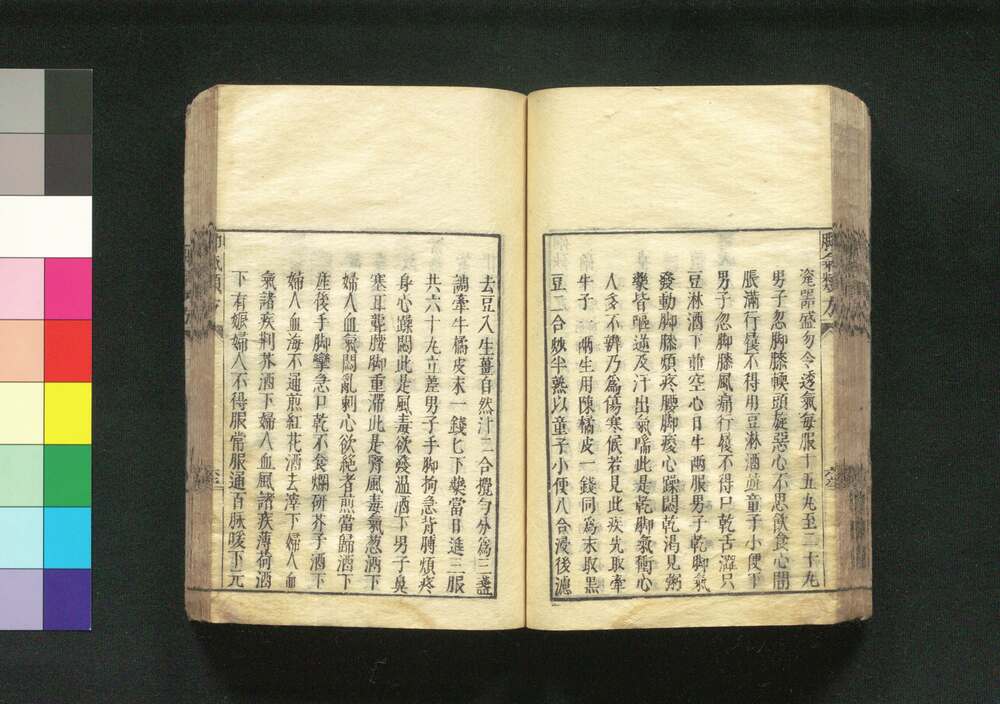 瓷器盛勿令透氣每服十五丸至二十丸
男子忽脚膝軟頭旋惡心不思飲食心間
脹滿行履不得用豆淋酒逆童子小便下
男子忽脚膝風痛行履不得口乾舌澀只
豆淋酒下並空心日午兩服男子乾脚氣
發動脚膝煩疼腰脚痠心躁悶乾渴見粥
藥皆嘔逆及汗出氣喘此是乾脚氣衝心
人多不辨乃爲傷寒候若見此疾先取牽
牛子一兩生用陳橘皮一錢同爲末取黑
豆二合炒半熟以童子小便八合浸後濾
去豆入生薑自然汁二合攪勻分爲三盞
調牽牛橘皮末一錢匕下藥當日進三服
共六十丸立差男子手脚拘急背膊煩疼
身心躁悶此是風毒欲發温酒下男子鼻
塞耳聾腰脚重滯此是腎風毒氣葱酒下
婦人血氣悶亂刺心欲絕者煎當歸酒下
産後手脚攣急口乾不食爛研芥子酒下
婦人血海不通煎紅花酒去滓下婦人血
氣諸疾荆芥酒下婦人血風諸疾薄荷酒
下有娠婦人不得服常服通百脉暖下元